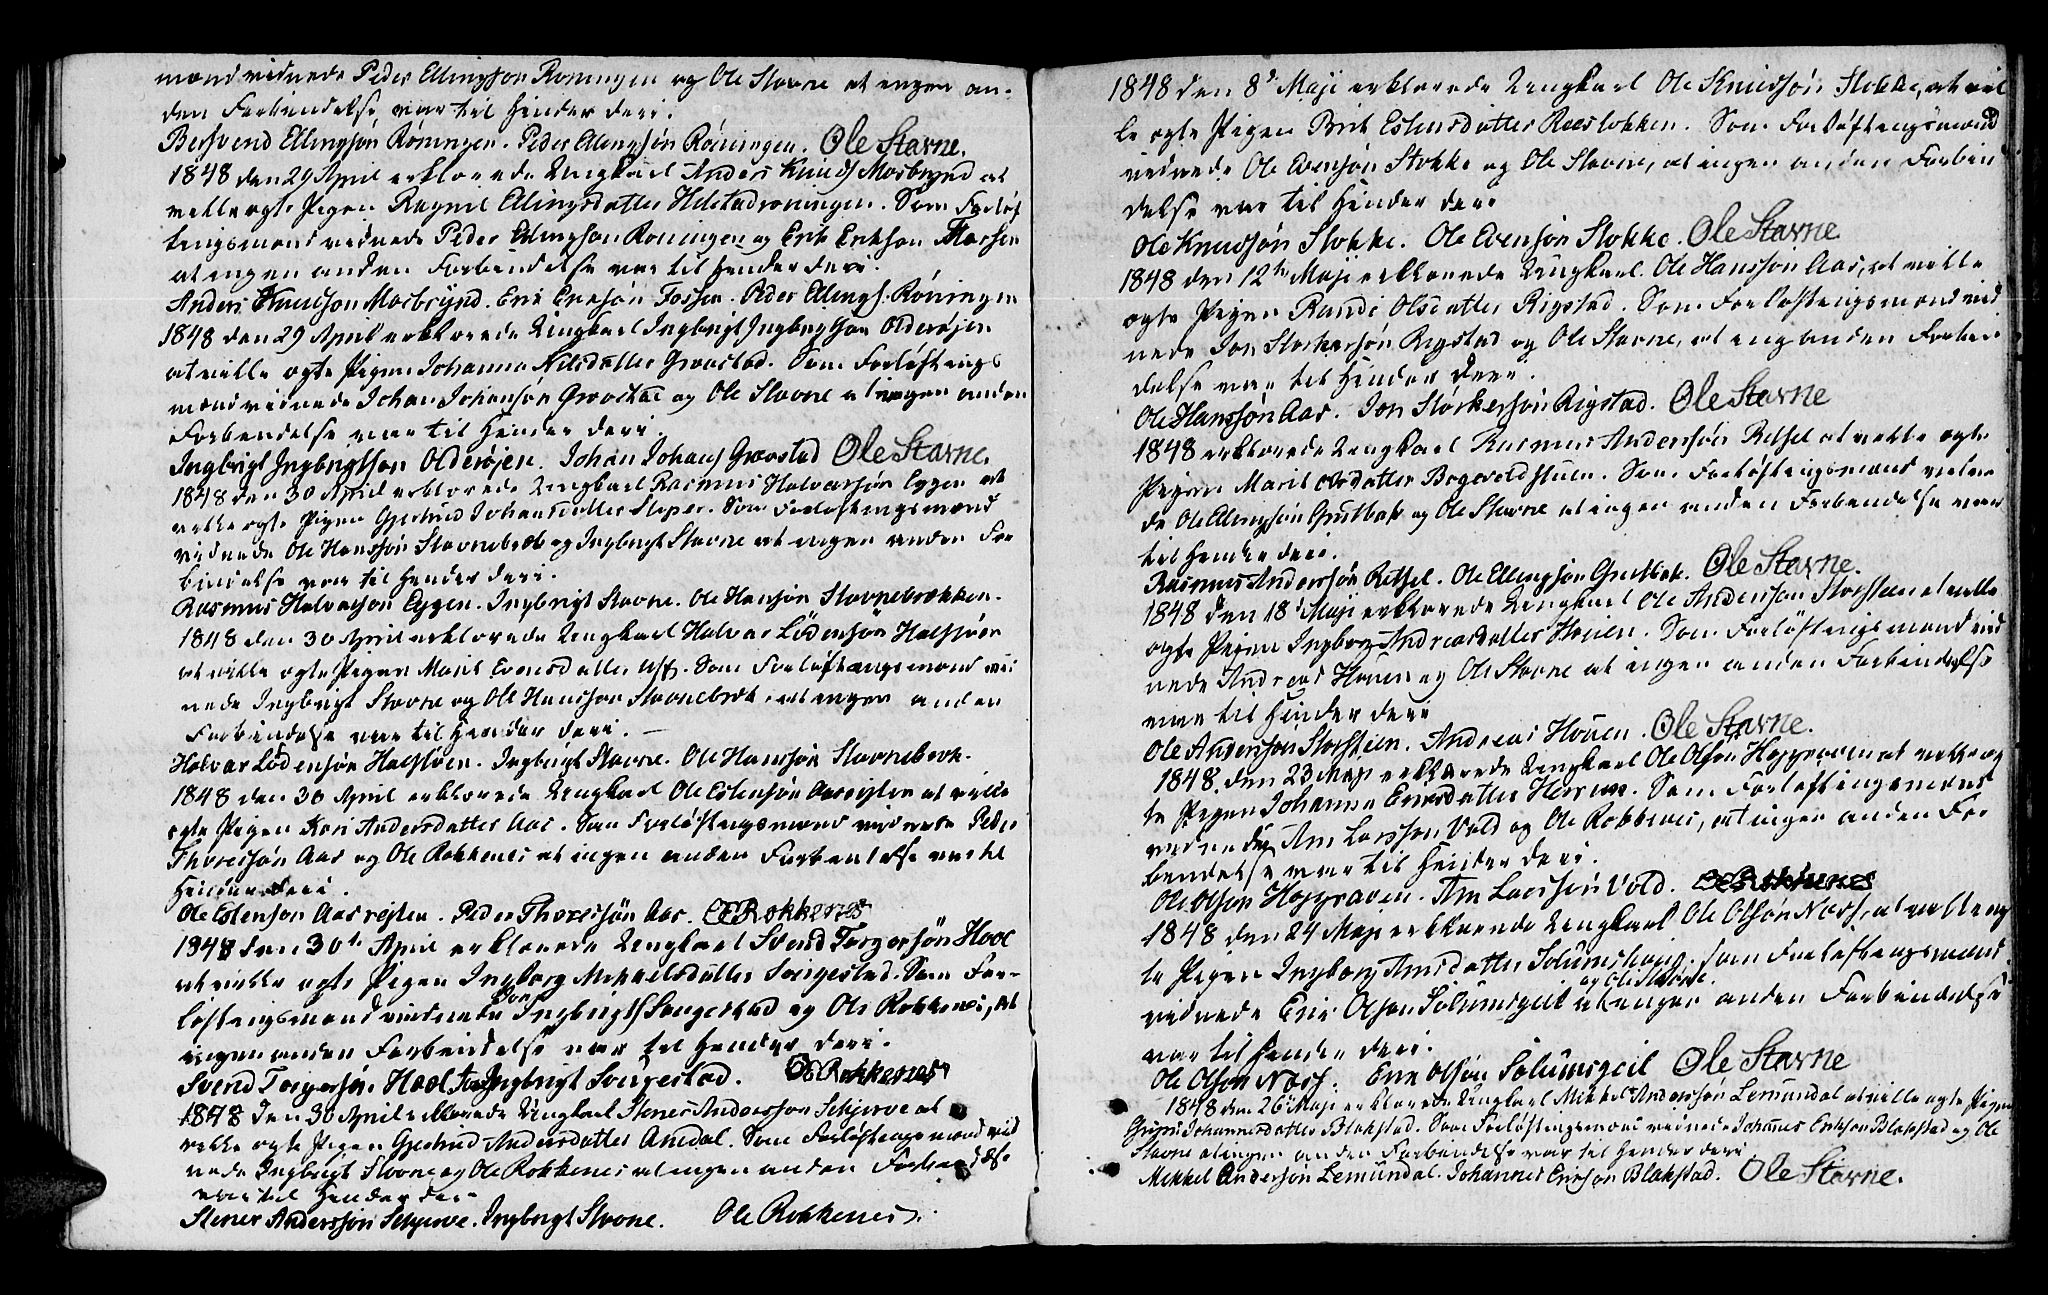 mand vidnede Peder Ellingsøn Roningen og Ole Stavne at ingen an-
den Forbindelse var til Hinder deri.
Berhvend Ellingsøn Roningen. Peder Ellingsøn Røningen. Ole Stavne.
1848 den 29 April erklærede Ungkarl Anders Knuds Mosbrynd at
ville ægte Pigen Ragnil Elingsdatter Helstadroningen. Som Forløf
tingsmand vidnede Peder Elingsøn Roningen og Erik Erikson
at ingen anden Forbindelse var til Hinder deri.
Anders Knudson Mosbrynd. Erik Eriksøn Fossen. Peder Ellings. Røningen
1848 den 29 April erklærede Ungkarl Ingbrigt Ingbrigtson Olderøjen
at ville ægte Pigen Johanna Nilsdatter Græstad. Som Forløftings
mand vidnede Johan Johansøn Græstad og Ole Stavne at ingen anden
Forbindelse var til Hinder deri.
Ingbrigt Ingbrigtson Olderøjen. Johan Johans Græstad Ole Stavne.
1848 den 30 April erklærede Ungkarl Rasmus Halvorsøn Eggen at
ville ægte Pigen Gjertrud Johansdatter Sloper. Som Forløftingsmand
vidnede Ole Hansøn Stavnebræk og Ingbrigt Stavne at ingen anden For
bindelse var til Hinder deri.
Rasmus Halvorsøn Eggen. Ingbrigt Stavne. Ole Hansøn Stavnebrækken.
1848 den 30 April erklærede Ungkarl Halvar Lodensøn Halsløen
at ville ægte Pigen Marit Evensdatter Uff. Som Forløftingsmand vid
nede Ingbrigt Stavne og Ole Hansson Stavnebræk, at ingen anden
Forbindelse var til Hinder deri. —
Halvar Lodensøn Halsløen. Ingbrigt Stavne. Ole Hansøn Stavnebræk.
1848 den 30 April erklærede Ungkarl Ole Estensøn Aasrejten at ville
ægte Pigen Kari Andersdatter Aas. Som Forløftingsmand vidnede Peder
Thoresøn Aas og Ole Rokkenes at ingen anden Forbindelse var til
Hinder deri.
Ole Estenson Aasrejten. Peder Thoresøn Aas. OERokkenes
1848 den 30te April erklærede Ungkarl Svend Torgersøn Hool
at ville ægte Pigen Ingborg Mikkelsdatter Songestad. Som For-
løftingsmand vidnede Ingbrigts Songestad og Ole Rokkenes, at
ingen anden Forbindelse var til Hinder deri.
Svend Torgersøn Hool Ingbrigt Songestad. OERokkenes
1848 den 30 April erklærede Ungkarl Stener Andersson Schjerve at
ville ægte Pigen Gjertrud Andersdatter Amdal. Som Forløftingsmand vid
nede Ingbrigt Stavne og Ole Rokkenes at ingen anden Forbindelse
var til Hinder deri
Stener Andersøn Schjerve. Ingbrigt Stavne. Ole Rokkenes.
1848 den 8de Maji erklærede Ungkarl Ole Knudsøn Stokke, at vil
le ægte Pigen Brit Estensdatter Reeslokken. Som Forløftingsmand
vidnede Ole Evensøn Stokke og Ole Stavne, at ingen anden Forbin
delse var til Hinder deri
Ole Knudsøn Stokke. Ole Evensøn Stokke. Ole Stavne
1848 den 12te Maji erklærede Ungkarl Ole Hansson Aas, at ville
ægte Pigen Randi Olsdatter Rigstad. Som Forløftingsmand vid
nede Jon Størkersøn Rigstad og Ole Stavne, at ing anden Forbin
delse var til Hinder deri.
Ole Hansøn Aas. Jon Størkersøn Rigstad. Ole Stavne
1848 erklærede Ungkarl Rasmus Andersøn Retsel at ville ægte
Pigen Marit Olsdatter Bogevoldstuen. Som Forløftingsmand vidne
de Ole Ellingsøn Grutbak og Ole Stavne at ingen anden Forbindelse var
til Hinder deri.
Rasmus Andersøn Retsel. Ole Ellingsøn Grutbak. Ole Stavne.
1848 den 18de Maji erklærede Ungkarl Ole Anderson Storsteen at ville
ægte Pigen Ingborg Andreasdatter Houen. Som Forløftingsmand vid
nede Andreas Houen og Ole Stavne at ingen anden Forbindelse
var til Hinder deri
Ole Andersson Storsteen. Andreas Houen. Ole Stavne.
1848 den 23 Maji erklærede Ungkarl Ole Olson Hoppraven at ville æg
te Pigen Johanna Ericsdatter. Som Forløftingsmand
vidnede Arn Larsson Vold og Ole Rokkenes, at ingen anden For
bindelse var til Hinder deri.
Ole Olson Hoppraven. Arn Larsson Vold. OERokkenes
1848 den 24 Maji erklærede Ungkarl Ole Olsøn Næss, at ville æg
te Pigen Ingborg Arnsdatter Solumshaug. Som Forløftingsmand
og Ole Stavne.
vidnede Eric Olsøn Solumsgeil at ingen anden Forbindelse
var til Hinder deri.
Ole Olson Næss. Eric Olsøn Solumsgeil Ole Stavne
1848 den 26de Maji erklærede Ungkarl Mikkel Andersøn Lemundal at ville ægte Pigen
Guru Johannesdatter Blokstad. Som Forløftingsmand vidnede Johannes Erikson Blokstad og Ole
Stavne at ingen anden Forbindelse var til Hinder deri
Mikkel Andersøn Lemundal. Johannes Ericson Blokstad. Ole Stavne.